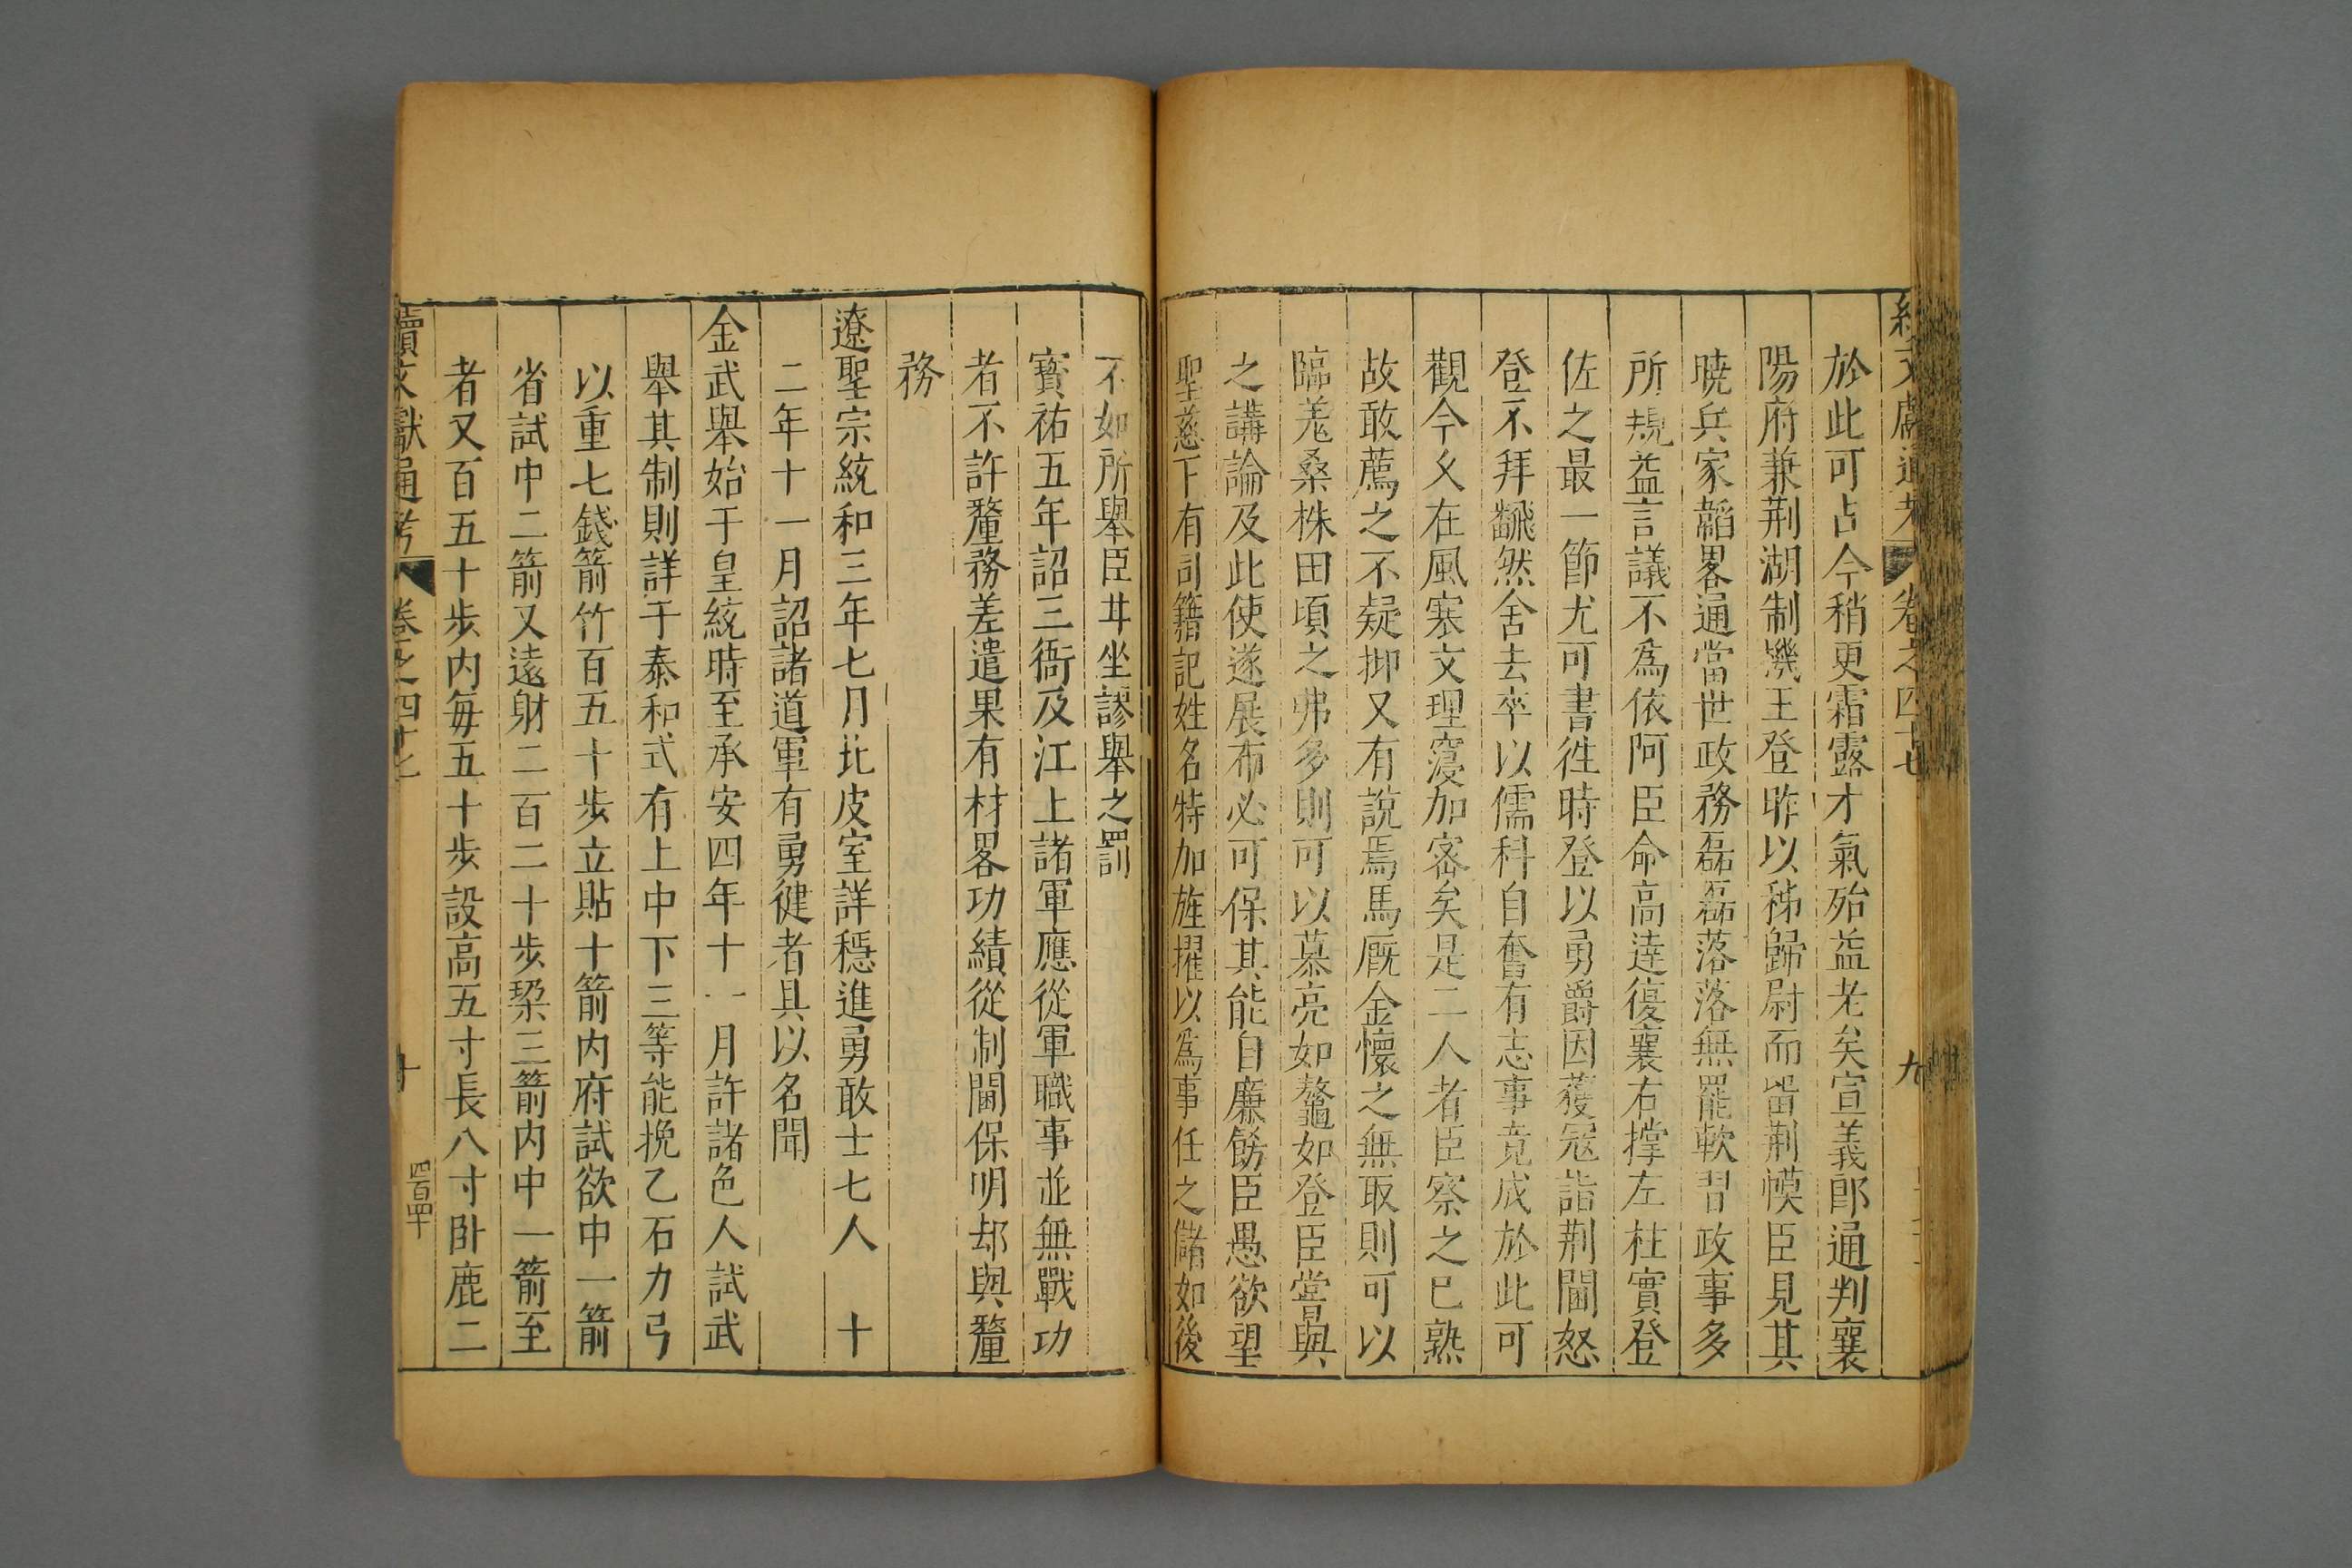 於此可占今稍更霜露才氣殆益老矣宣義郎通判襄
陽府兼荆湖制機王登昨以秭歸尉而畱荆幙臣見其
曉兵家韜畧通當世政務磊磊落落無罷軟習政事多
所規益言議不為依阿臣命高逹復襄右撑左柱實登
佐之最一節尤可書徃時登以勇爵因䕶冦詣荆閫怒
登不拜飜然舍去卒以儒科自奮有志事竟成於此可
觀今乆在風寒文理寖加密矣是二人者臣察之巳熟
故敢薦之不疑抑又有說焉馬廐金懷之無取則可以
臨羗桑株田頃之弗多則可以慕亮如鼇如登臣嘗與
之講論及此使遂展布必可保其能自廉飭臣愚欲望
聖慈下有司籍記姓名特加旌擢以為事任之儲如後
不如所舉臣井坐謬舉之罰
寳祐五年詔三衙及江上諸軍應從軍職事並無戰功
者不許釐務差遣果有材畧功績從制閫保明却與釐
務
遼聖宗統和三年七月北皮室詳穩進勇敢士七人 十
二年十一月詔諸道軍有勇健者具以名聞
金武舉始于皇統時至承安四年十一月許諸色人試武
舉其制則詳于泰和式有上中下三等能挽乙石力弓
以重七錢箭竹百五十步立貼十箭内府試欲中一箭
省試中二箭又遠射二百二十步梁三箭内中一箭至
者又百五十步内每五十步設高五寸長八寸卧鹿二
續文獻通考 卷之四十七 十 四百四十